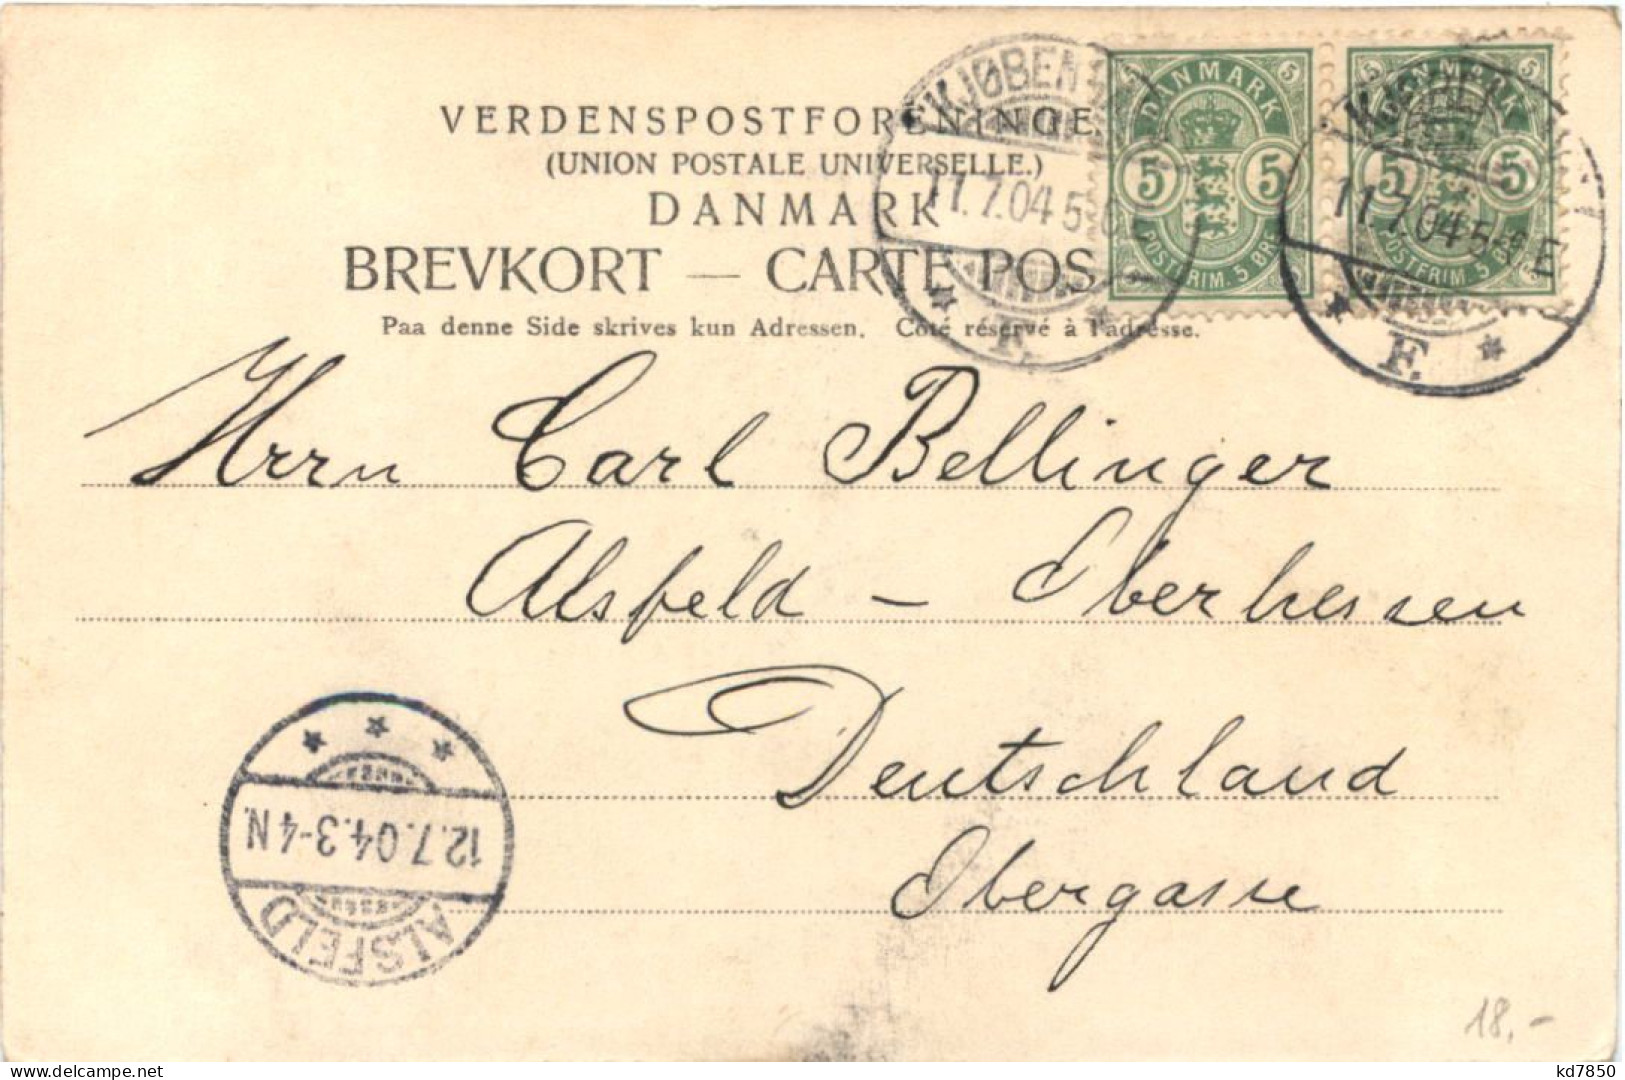 VERDENSPOSTFORENINGE
(UNION POSTALE UNIVERSELLE.)
DANMARK
BREVKORT — CARTE POS
Paa denne Side skrives kun Adressen. Côté réservé à l'adresse.
KJØBEN
11.7.04 5-6 E
F.
DANMARK
5 5 5 5
POSTFRIM. 5 ØRE
KJØBEN
11.7.04 5-6 E
F.
DANMARK
5 5 5 5
POSTFRIM. 5 ØRE
Herrn Carl Bellinger
Alsfeld – Oberhessen
Deutschland
Obergasse
ALSFELD
12.7.04.3-4 N.
18,-
kd7850